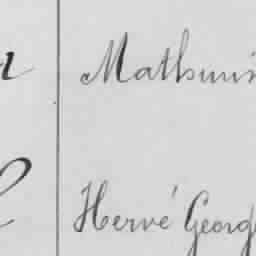 Mathurin
Hervé Georg